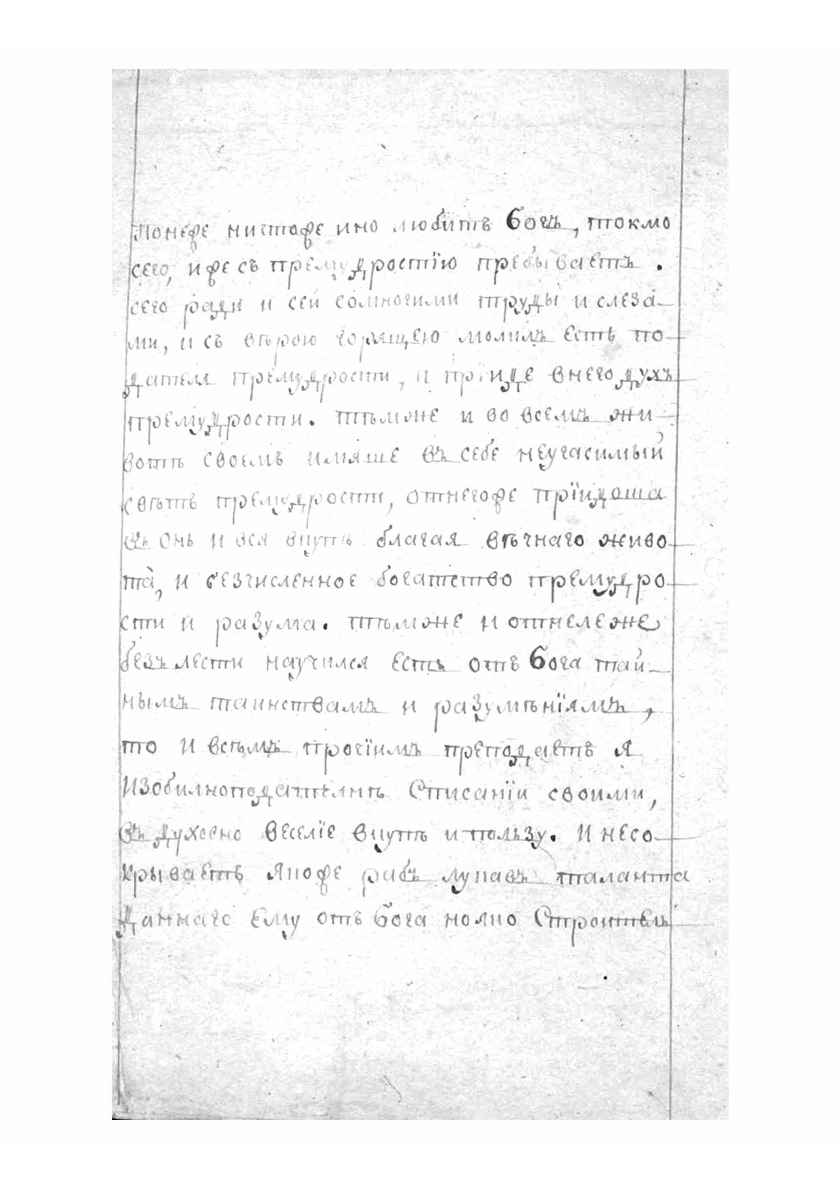 Понеже ничтоже ино любитъ Богъ, токмо
сего, иже съ премудростїю пребываетъ.
сего ради и сей сомногими труды и слеза
ми, и съ вѣрою горящею молилъ есть по
дателя премудрости, и прїиде внего духъ
премудрости. тѣмже и во всемъ жи
вотѣ своемъ имяше въ себе неугасимый
свѣтъ премудрости, отнегоже прїидоша
въ онь и вся внутъ благая вѣчнаго живо
та, и безчисленное богатство премудро
сти и разума. тѣмже и отнележе
безъ лести научился есть отъ Бога тай
нымъ таинствамъ и разумѣнїямъ,
то и всѣмъ прочїимъ преподаетъ я
Изобилноподателнѣ Списанїи своими,
въ духовно веселїе внутъ и пользу. И несо
крываетъ Якоже рабъ лукавъ таланта
Даннаго Ему отъ Бога но яко Строитель